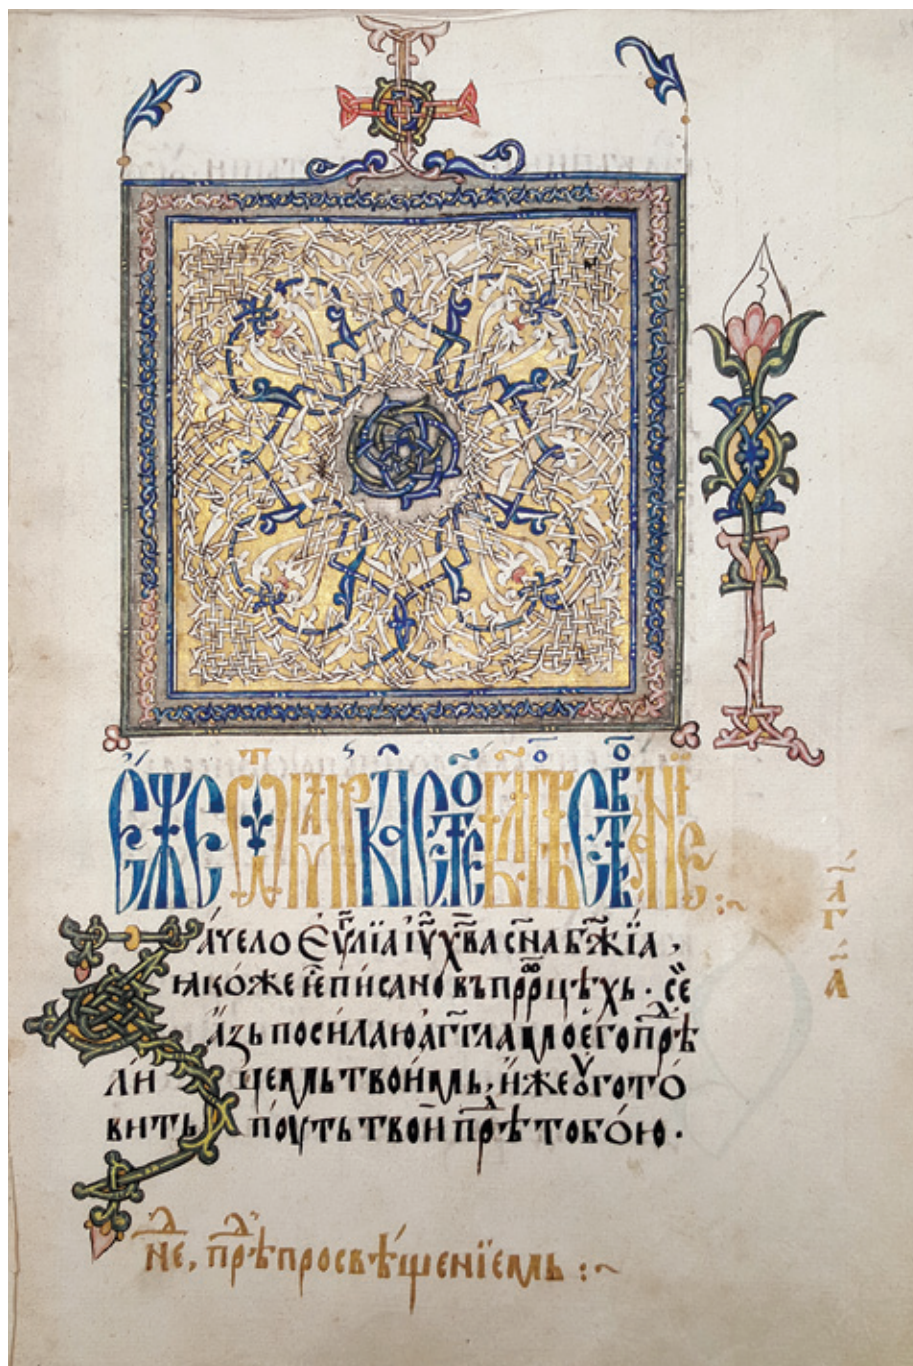 Е҆́же ѿ маркꙋ ст҃ое бл҃говѣствованїе :~
Зачело Еѵⷢ҇лїа і҆ѵ҃ х҃ва сн҃а бж҃їа,
ꙗкоже є҆́ писано въ пррⷪ҇цѣхь. сѐ
а҆́зь посилаю а҆́гг҃ла моего прⷣѣ
лицемь твоимь, иже ꙋготo
вить поуть твои прⷣѣ тобою.
не, прⷣѣ просвѣщенїемь :~